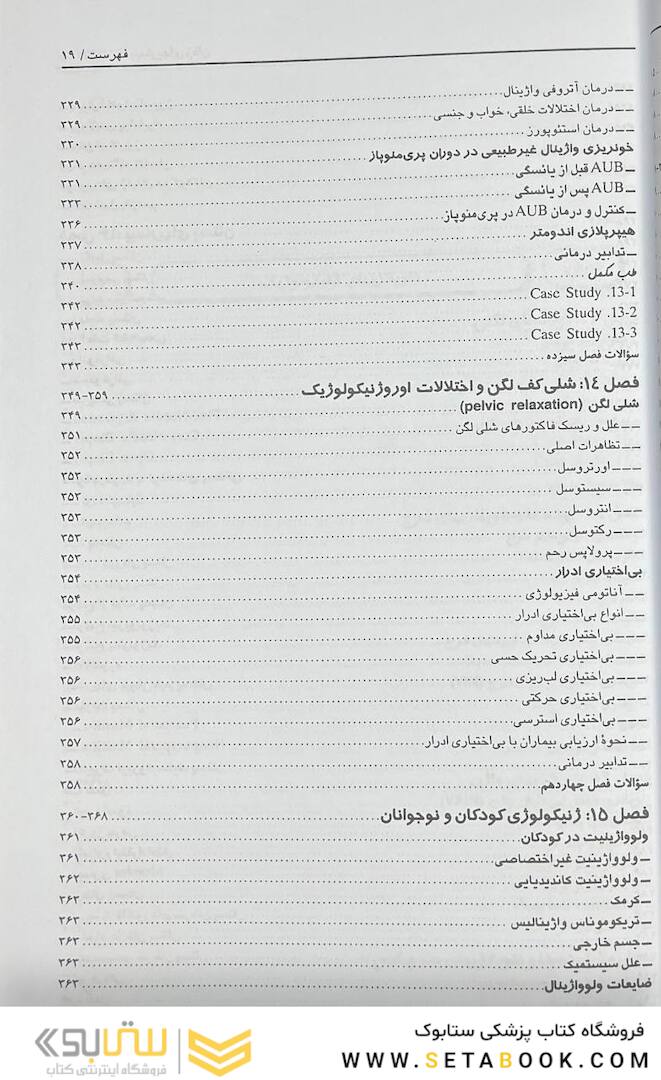 فهرست / ۱۹
ــ ــ درمان آتروفی واژینال ... ۳۲۹
ــ ــ درمان اختلالات خلقی، خواب و جنسی ... ۳۲۹
ــ ــ درمان استئوپورز ... ۳۳۰
خونریزی واژینال غیرطبیعی در دوران پری‌منوپاز ... ۳۳۱
ــ AUB قبل از یائسگی ... ۳۳۱
ــ AUB پس از یائسگی ... ۳۳۳
ــ کنترل و درمان AUB در پری‌منوپاز ... ۳۳۶
هیپرپلازی اندومتر ... ۳۳۷
ــ تدابیر درمانی ... ۳۳۸
طب مکمل ... ۳۴۰
Case Study .13-1 ... ۳۴۲
Case Study .13-2 ... ۳۴۲
Case Study .13-3 ... ۳۴۳
سؤالات فصل سیزده ... ۳۴۳
فصل ۱۴: شلی کف لگن و اختلالات اوروژنیکولوژیک ... ۳۴۹-۳۵۹
شلی لگن (pelvic relaxation) ... ۳۴۹
ــ ــ علل و ریسک فاکتورهای شلی لگن ... ۳۵۱
ــ ــ تظاهرات اصلی ... ۳۵۲
ــ ــ ــ اورتروسل ... ۳۵۳
ــ ــ ــ سیستوسل ... ۳۵۳
ــ ــ ــ انتروسل ... ۳۵۳
ــ ــ ــ رکتوسل ... ۳۵۳
ــ ــ ــ پرولاپس رحم ... ۳۵۳
بی‌اختیاری ادرار ... ۳۵۴
ــ ــ آناتومی فیزیولوژی ... ۳۵۴
ــ ــ انواع بی‌اختیاری ادرار ... ۳۵۵
ــ ــ ــ بی‌اختیاری مداوم ... ۳۵۵
ــ ــ ــ بی‌اختیاری تحریک حسی ... ۳۵۶
ــ ــ ــ بی‌اختیاری لب‌ریزی ... ۳۵۶
ــ ــ ــ بی‌اختیاری حرکتی ... ۳۵۶
ــ ــ ــ بی‌اختیاری استرسی ... ۳۵۶
ــ ــ نحوهٔ ارزیابی بیماران با بی‌اختیاری ادرار ... ۳۵۷
ــ ــ تدابیر درمانی ... ۳۵۸
سؤالات فصل چهاردهم ... ۳۵۸
فصل ۱۵: ژنیکولوژی کودکان و نوجوانان ... ۳۶۰-۳۶۸
ولوواژینیت در کودکان ... ۳۶۱
ــ ولوواژینیت غیراختصاصی ... ۳۶۱
ــ ولوواژینیت کاندیدیایی ... ۳۶۲
ــ کرمک ... ۳۶۳
ــ تریکوموناس واژینالیس ... ۳۶۳
ــ جسم خارجی ... ۳۶۳
ــ علل سیستمیک ... ۳۶۳
ضایعات ولوواژینال ... ۳۶۳
فروشگاه کتاب پزشکی ستابوک
WWW.SETABOOK.COM
ستابوک
فروشگاه اینترنتی کتاب